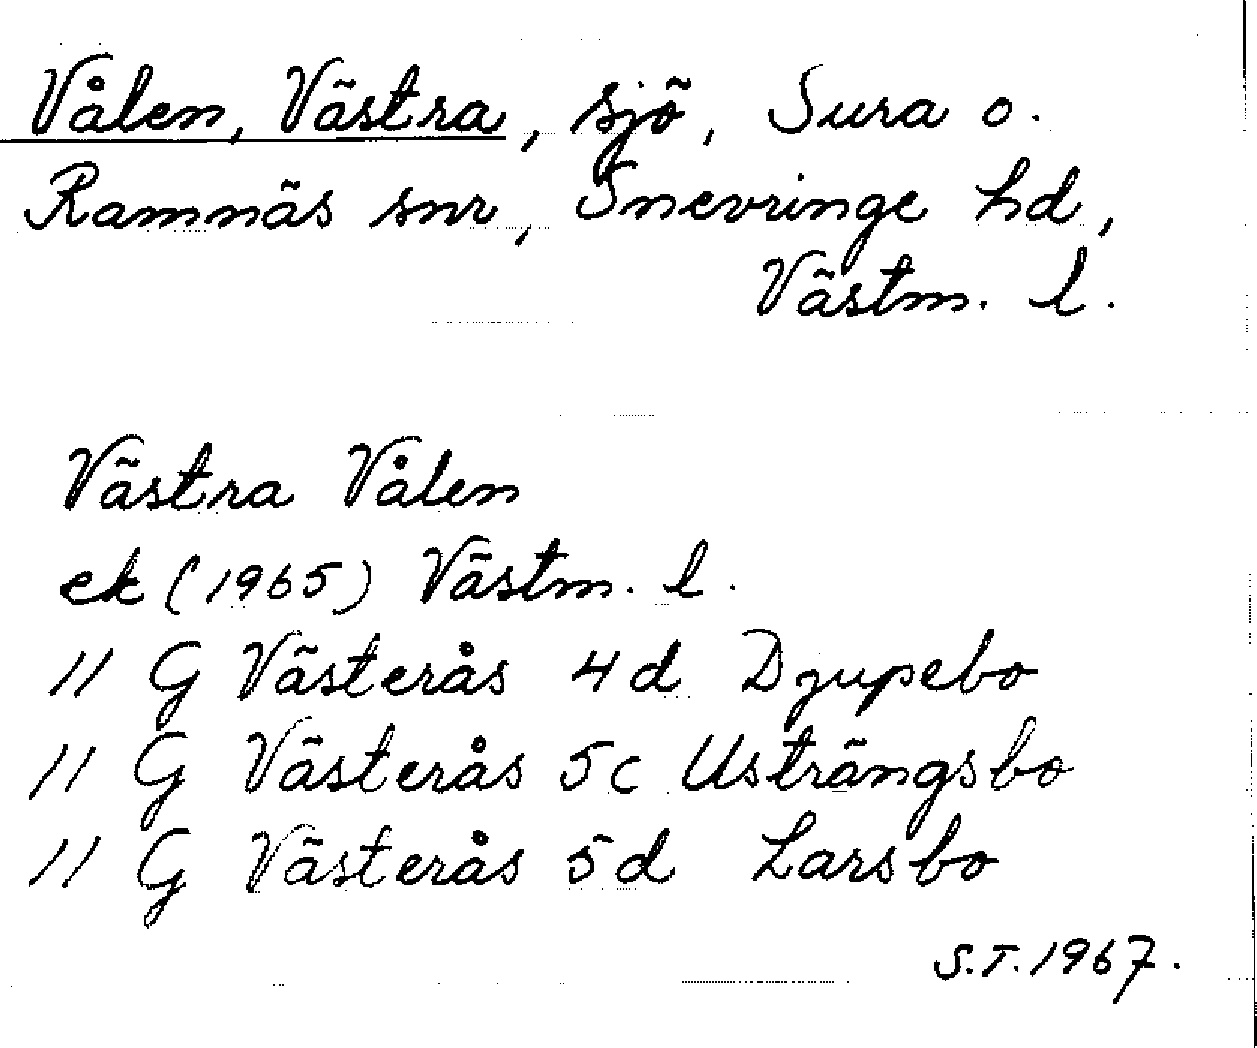 Vålen, Västra, sjö, Sura o.
Ramnäs snr, Snevringe hd,
Västm. l.
Västra Vålen
ek (1965) Västm. l.
11 G Västerås 4d Djupebo
11 G Västerås 5c Usträngsbo
11 G Västerås 5d Larsbo
S.T. 1967.